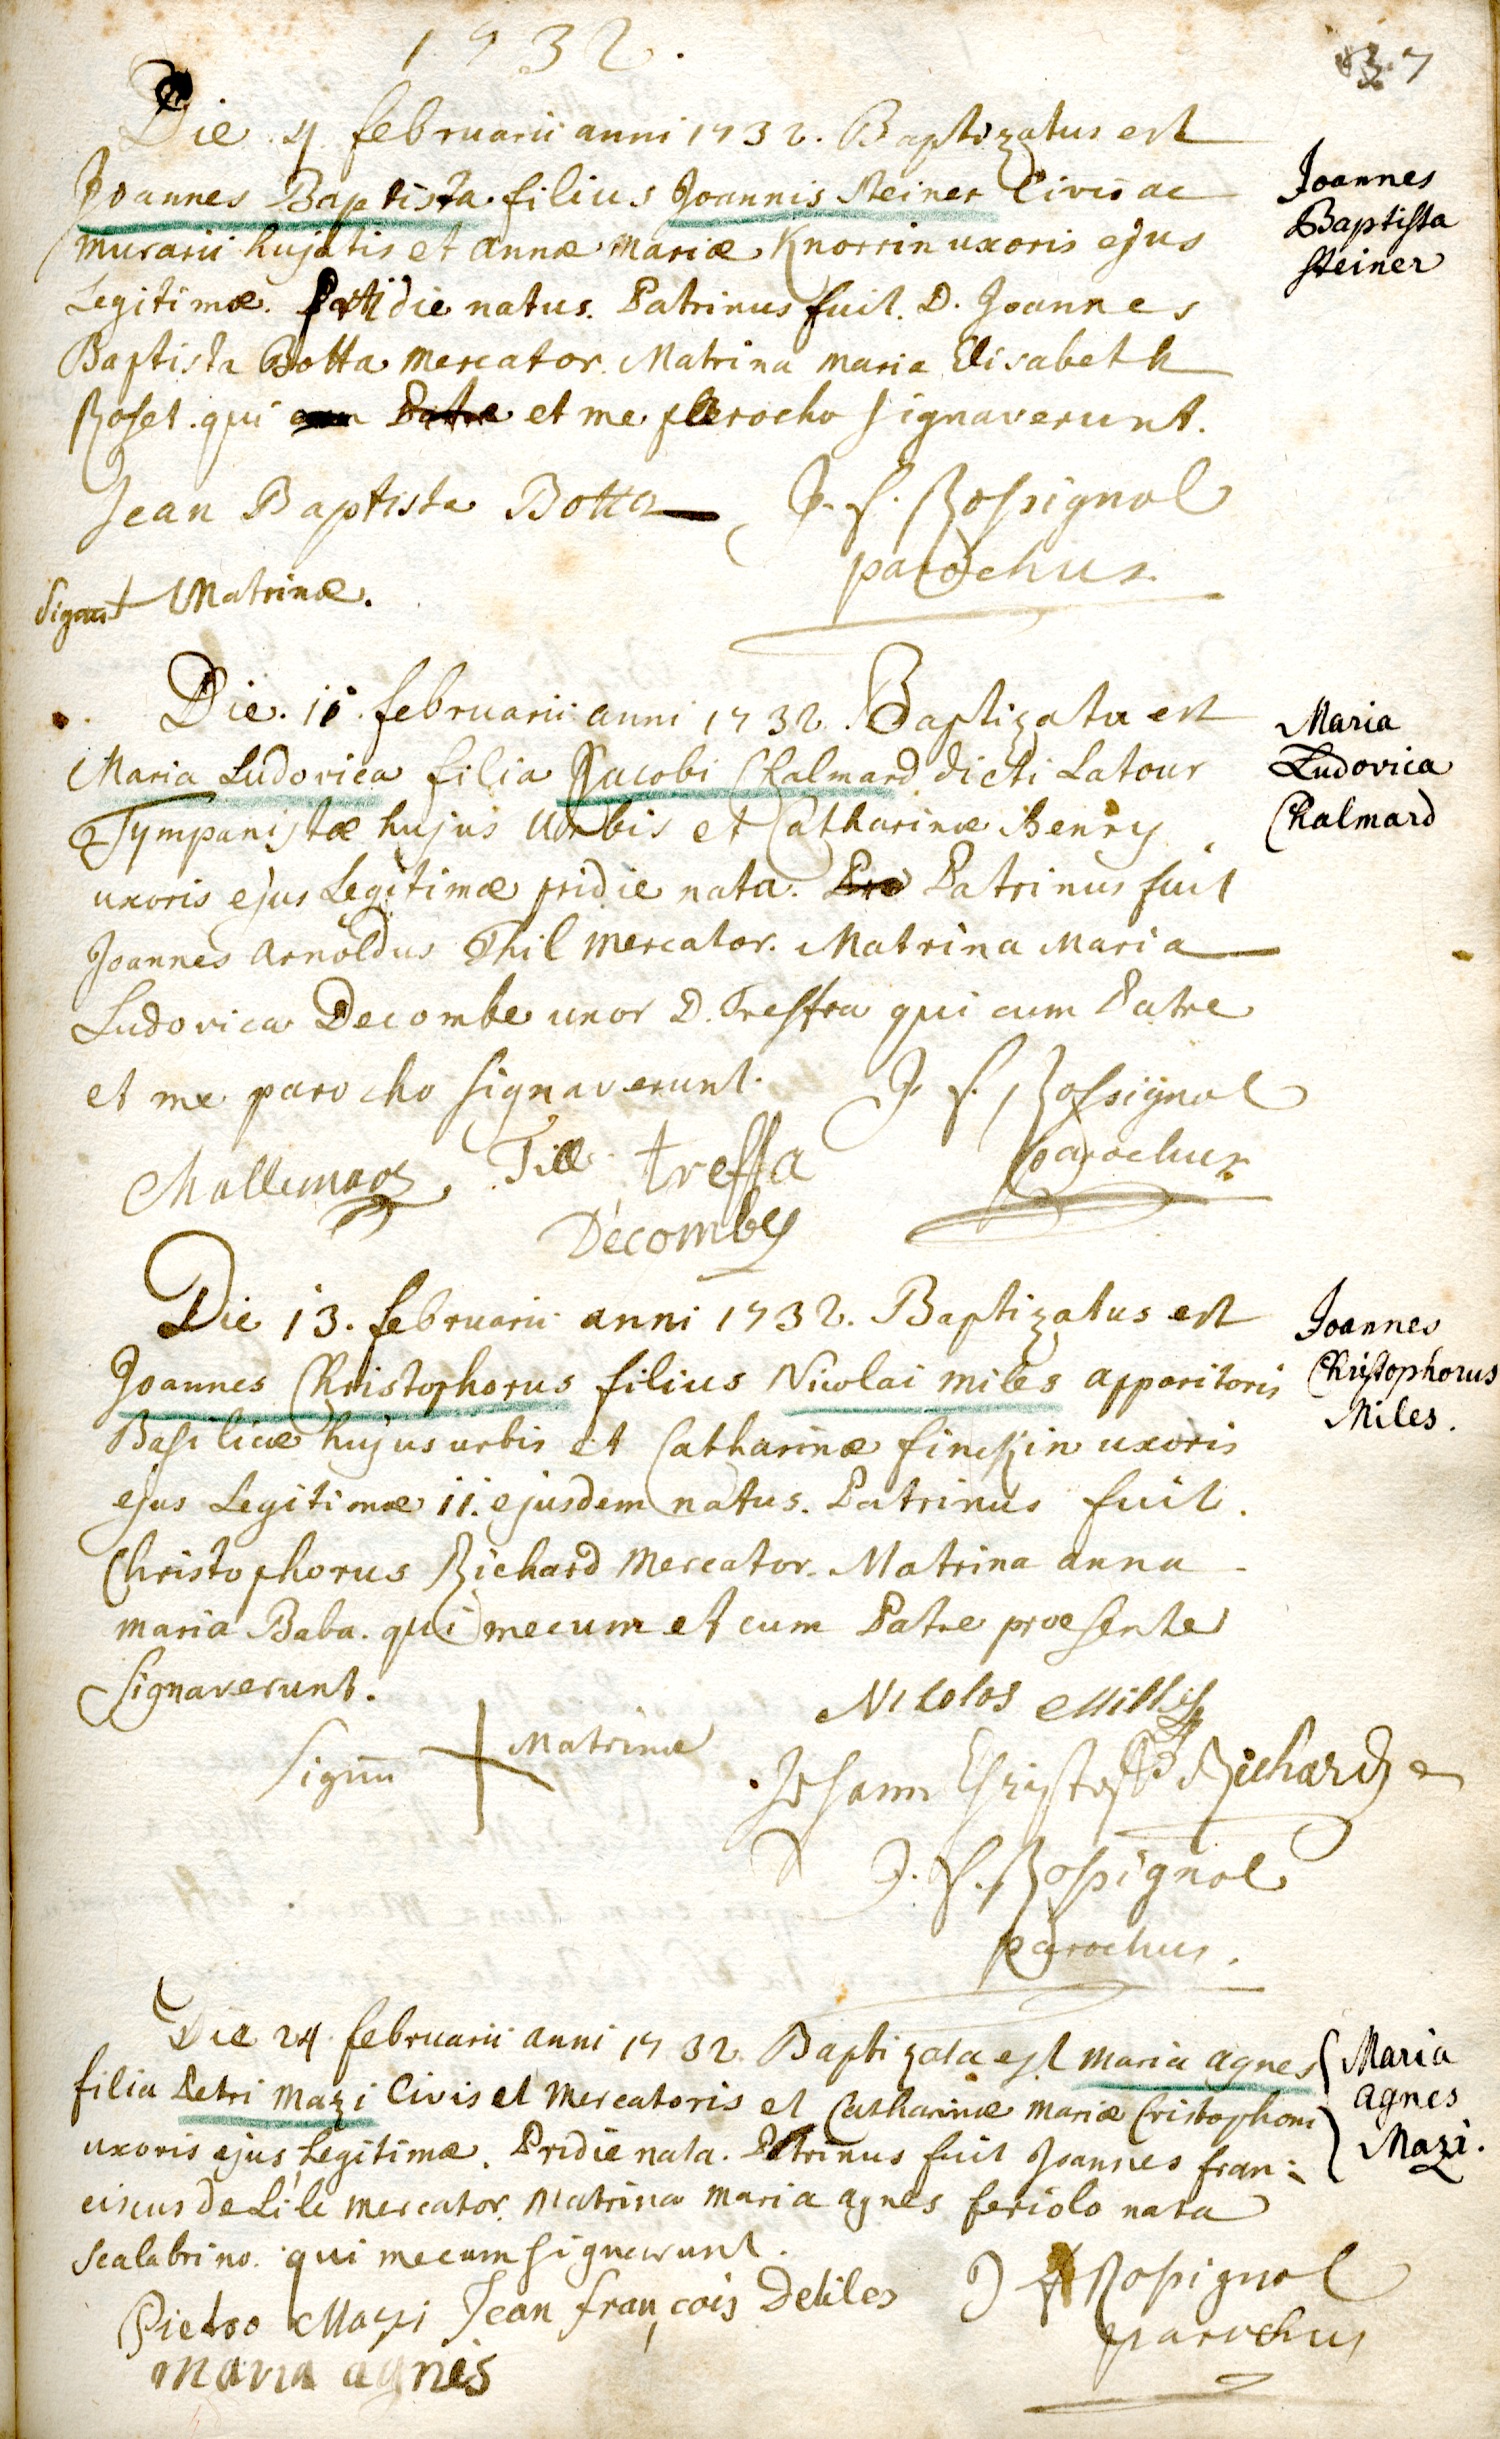 1732.
37
Die 4 februarii anni 1732. Baptizatus est
Joannes Baptista filius Joannis Steiner Civis ac
murarii hujatis et annæ mariæ Knorrin uxoris ejus
Legitimæ. die natus. Patrinus fuit. D. Joannes
Baptista Botta mercator. Matrina maria Elisabeth
Roset. qui et me parocho signaverunt.
Joannes
Baptista
Steiner
Jean Baptista Botta
J. f. Rossignol
parochus.
Signu Matrinæ.
Die. 11. februarii anni 1732. Baptizata est
Maria Ludovica filia Jacobi Chalmard dicti Latour
Tympanistæ hujus Urbis et Catharinæ Henry
uxoris ejus Legitimæ pridie nata. Patrinus fuit
Joannes Arnoldus Thil mercator. Matrina Maria
Ludovica Decombe uxor D. Treffra qui cum Patre
et me parocho signaverunt.
Maria
Ludovica
Chalmard
J. f. Rossignol
parochus
Till treffa
Decombes
Die 13. februarii anni 1732. Baptizatus est
Joannes Christophorus filius Nicolai miles apparitoris
Basilicæ hujus urbis et Catharinæ finckin uxoris
ejus Legitimæ 11. ejusdem natus. Patrinus fuit.
Christophorus Richard mercator. Matrina anna
maria Baba. qui mecum et cum Patre præsente
signaverunt.
Joannes
Christophorus
Miles.
Nicolos Millis
Signu Matrinæ
Johann Christoff Richard
J. f. Rossignol
parochus.
Die 24 februarii anni 1732 Baptizata est maria agnes
filia Petri mazi Civis et mercatoris et Catharinæ mariæ Cristophori
uxoris ejus Legitimæ. Pridie nata. Patrinus fuit Joannes fran=
ciscus de Lile mercator. Matrina maria agnes feriolo nata
scalabrino. qui mecum signarunt.
Maria
agnes
Mazi.
Pietro Mazi Jean françois Deliles
J f Rossignol
parochus
maria agnis